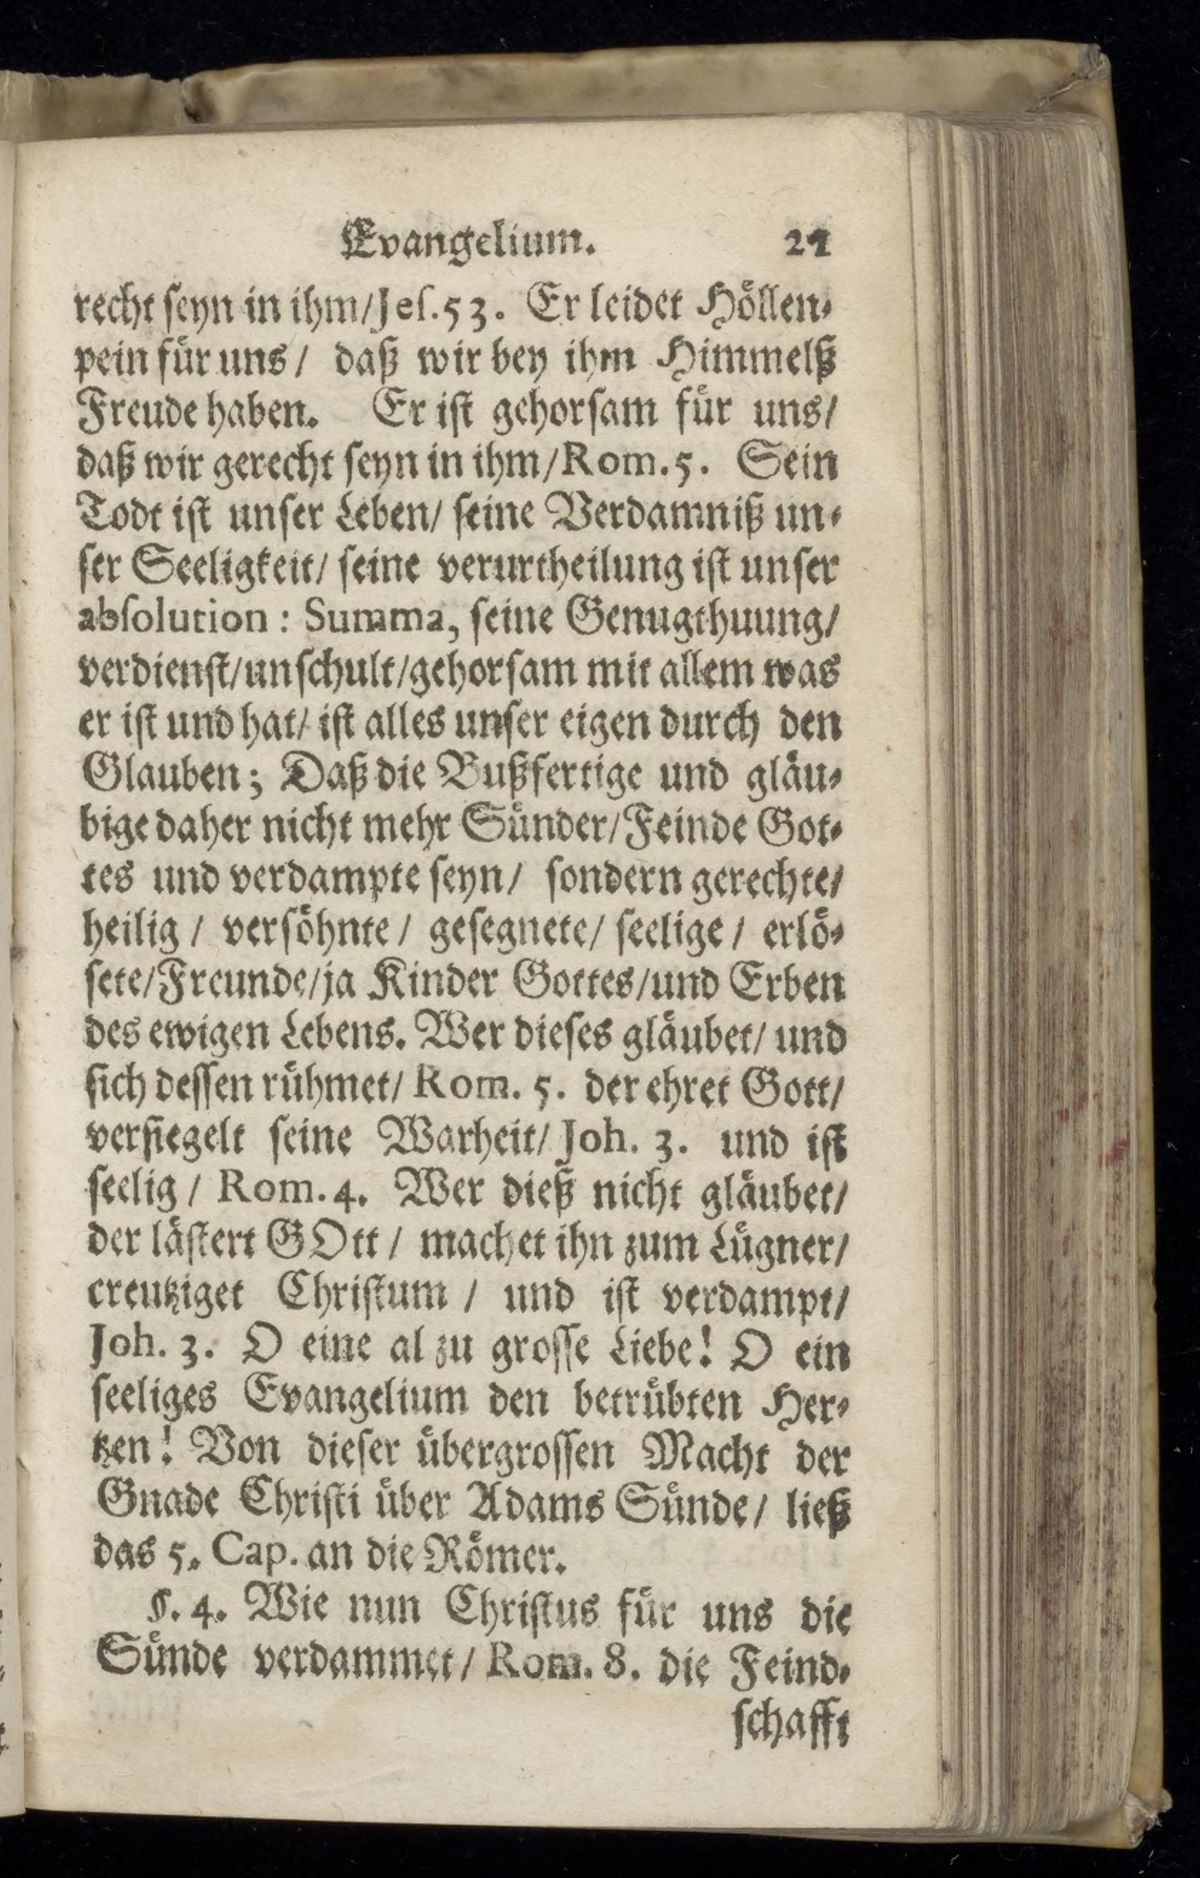 Evangelium. 21
recht ſeyn in ihm/Jeſ.53. Er leidet Hoͤllen-
pein fuͤr uns/ daß wir bey ihm Himmelß
Freude haben. Er iſt gehorſam fuͤr uns/
daß wir gerecht ſeyn in ihm/Rom.5. Sein
Todt iſt unſer Leben/ ſeine Verdamniß un-
ſer Seeligkeit/ ſeine verurtheilung iſt unſer
abſolution : Summa, ſeine Genugthuung/
verdienſt/unſchult/gehorſam mit allem was
er iſt und hat/ iſt alles unſer eigen durch den
Glauben; Daß die Bußfertige und glaͤu-
bige daher nicht mehr Suͤnder/Feinde Got-
tes und verdampte ſeyn/ ſondern gerechte/
heilig / verſoͤhnte / geſegnete/ ſeelige / erloͤ-
ſete/Freunde/ja Kinder Gottes/und Erben
des ewigen Lebens. Wer dieſes glaͤubet/ und
ſich deſſen ruͤhmet/ Rom. 5. der ehret Gott/
verſiegelt ſeine Warheit/ Joh. 3. und iſt
ſeelig / Rom.4. Wer dieß nicht glaͤubet/
der laͤſtert GOtt / machet ihn zum Luͤgner/
creutziget Chriſtum / und iſt verdampt/
Joh. 3. O eine al zu groſſe Liebe! O ein
ſeeliges Evangelium den betruͤbten Her-
tzen! Von dieſer uͤbergroſſen Macht der
Gnade Chriſti uͤber Adams Suͤnde/ ließ
das 5. Cap. an die Roͤmer.
§. 4. Wie nun Chriſtus fuͤr uns die
Suͤnde verdammet/ Rom. 8. die Feind-
ſchafft